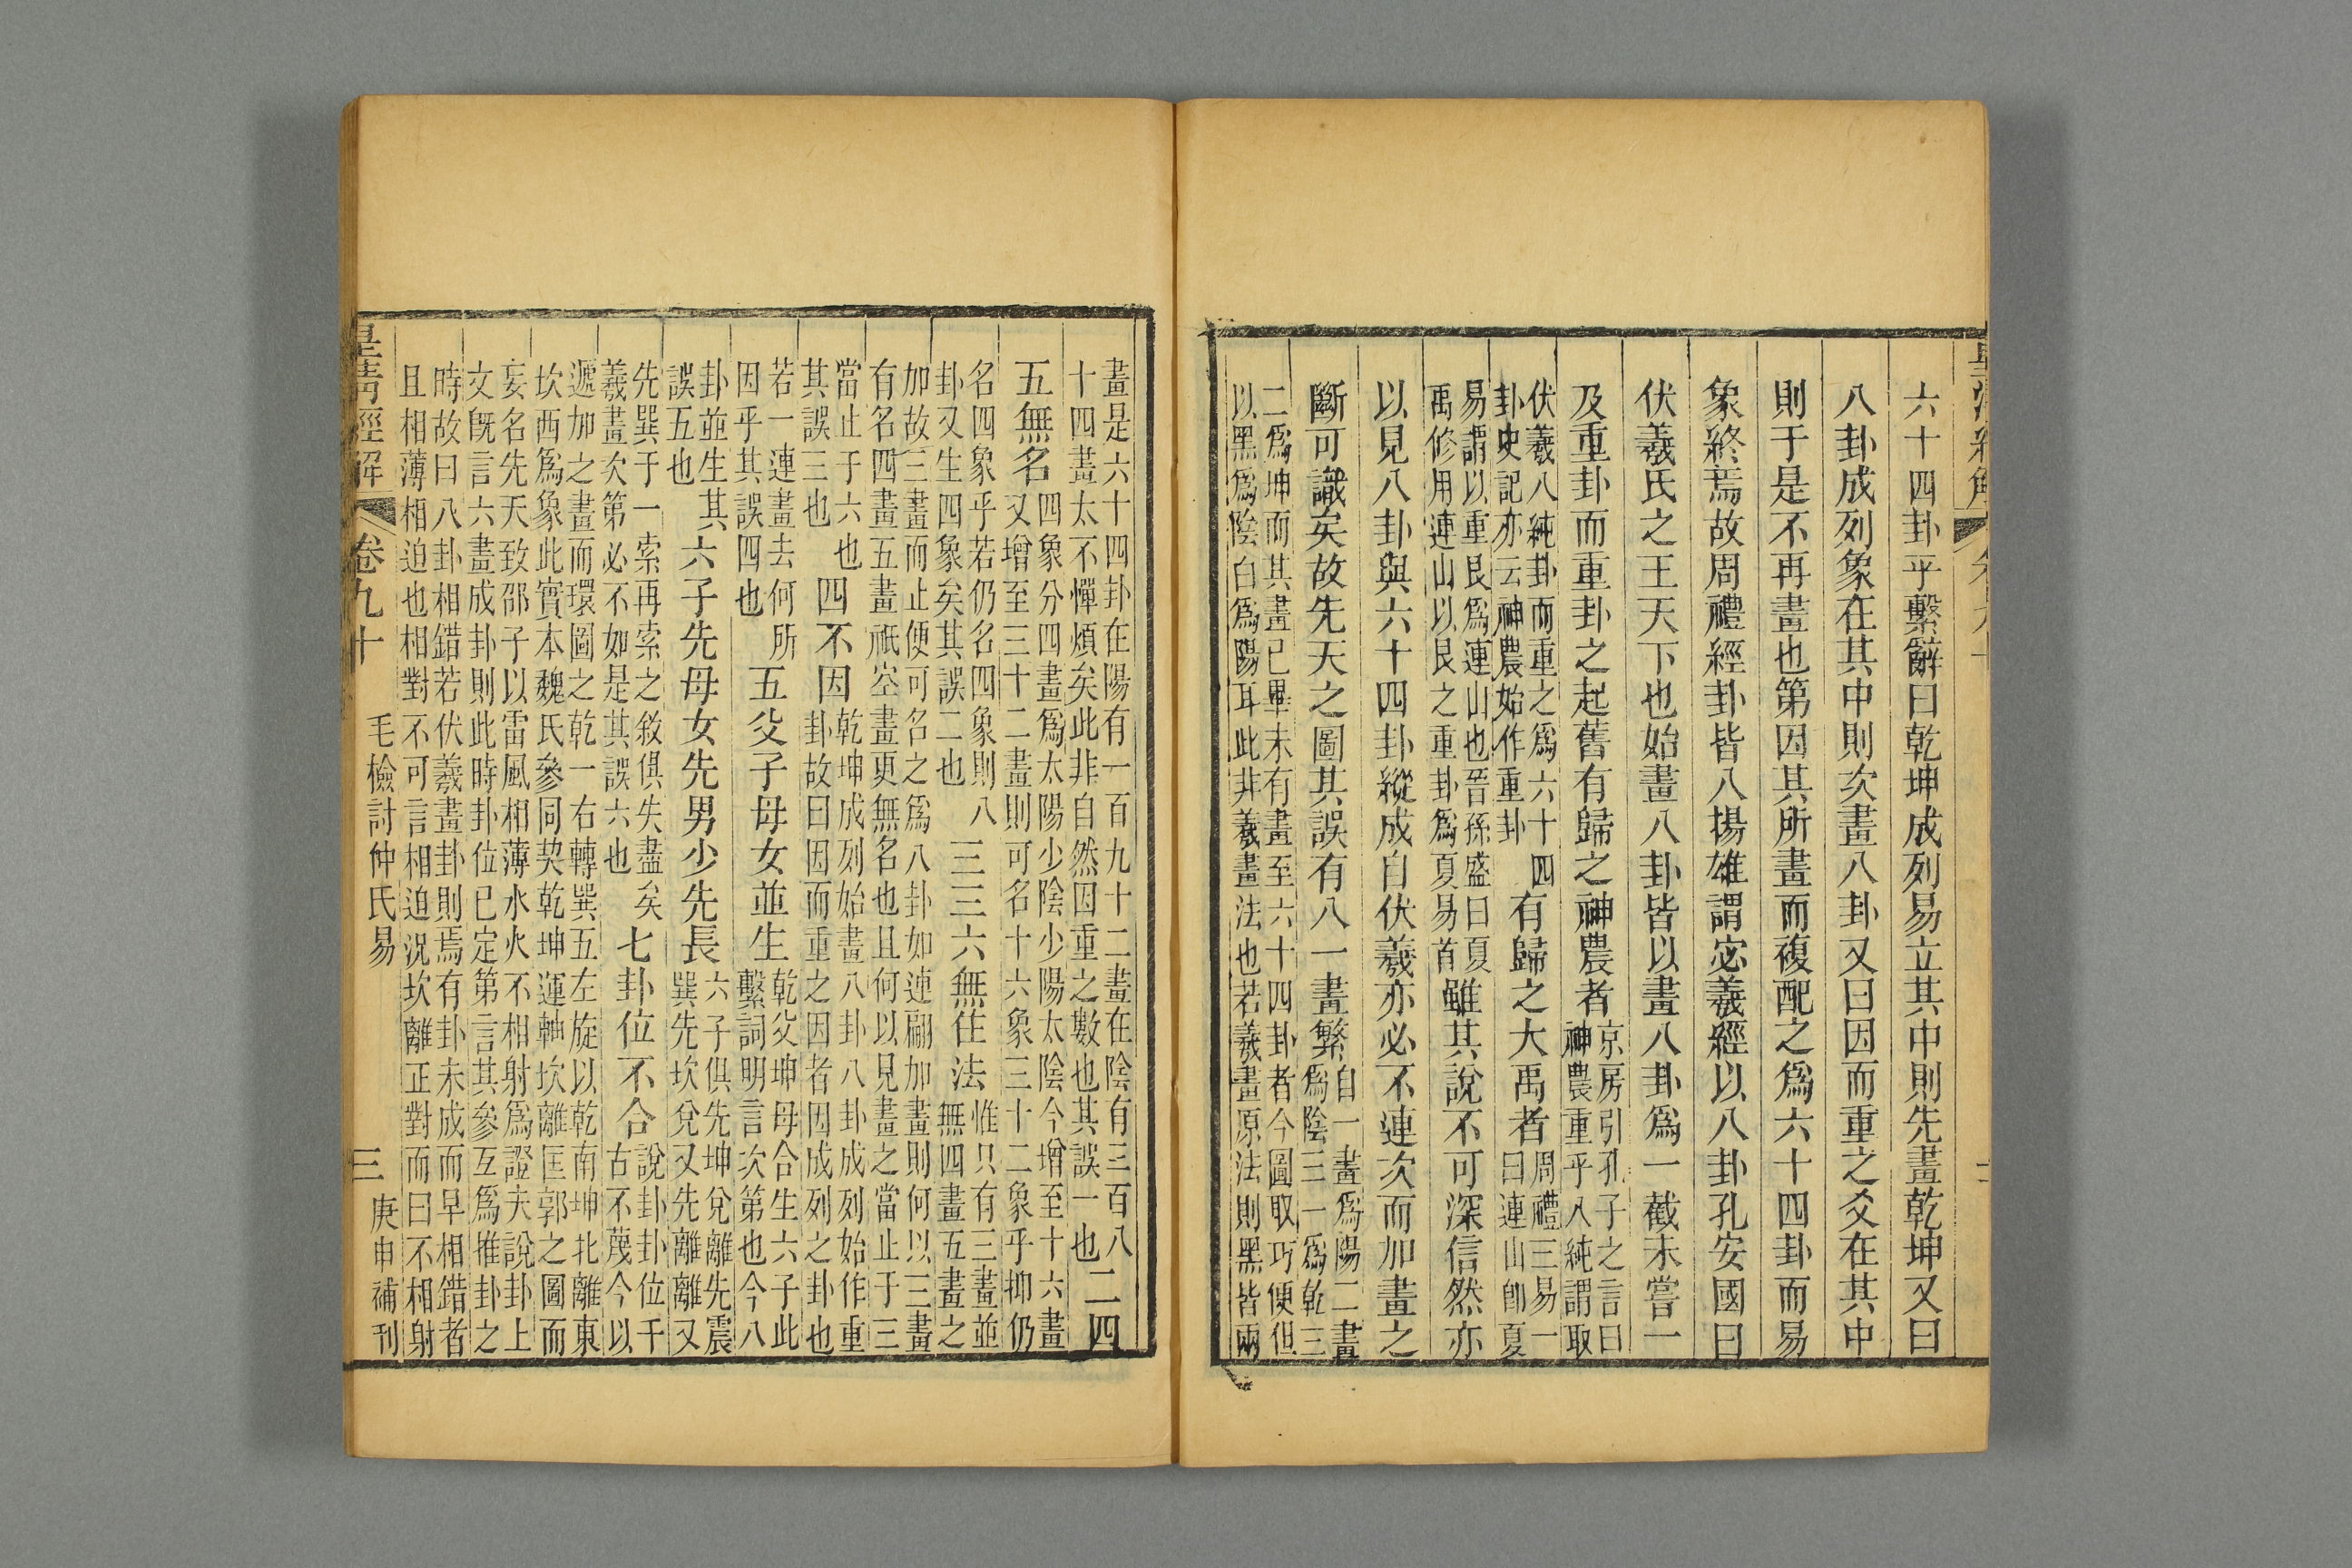 六十四卦乎繫辭曰乾坤成列易立其中則先畫乾坤又曰
八卦成列象在其中則次畫八卦又曰因而重之爻在其中
則于是不再畫也第因其所畫而複配之爲六十四卦而易
象終焉故周禮經卦皆八揚雄謂宓羲經以八卦孔安國曰
伏羲氏之王天下也始畫八卦皆以畫八卦爲一截未嘗一
及重卦而重卦之起舊有歸之神農者
京房引孔子之言曰
神農重乎八純謂取
伏羲八純卦而重之爲六十四
卦史記亦云神農始作重卦
有歸之大禹者
周禮三易一
曰連山卽夏
易謂以重艮爲連山也晉孫盛曰夏
禹修用連山以艮之重卦爲夏易首
雖其說不可深信然亦
以見八卦與六十四卦縱成自伏羲亦必不連次而加畫之
斷可識矣故先天之圖其誤有八一畫繁
自一畫爲陽二畫
爲陰三一爲乾三
二爲坤而其畫已畢未有畫至六十四卦者今圖取巧便但
以黑爲陰白爲陽耳此非羲畫法也若羲畫原法則黑皆兩
畫是六十四卦在陽有一百九十二畫在陰有三百八
十四畫太不憚煩矣此非自然因重之數也其誤一也
二四
五無名
四象分四畫爲太陽少陰少陽太陰今增至十六畫
又增至三十二畫則可名十六象三十二象乎抑仍
名四象乎若仍名四象則八
卦又生四象矣其誤二也
三三六無住法
惟只有三畫並
無四畫五畫之
加故三畫而止便可名之爲八卦如連翩加畫則何以三畫
有名四畫五畫祇空畫更無名也且何以見畫之當止于三
當止于六也
其誤三也
四不因
乾坤成列始畫八卦八卦成列始作重
卦故曰因而重之因者因成列之卦也
若一連畫去何所
因乎其誤四也
五父子母女並生
乾父坤母合生六子此
繫詞明言次第也今八
卦並生其
誤五也
六子先母女先男少先長
六子俱先坤兌離先震
巽先坎兌又先離離又
先巽于一索再索之敘俱失盡矣
羲畫次第必不如是其誤六也
七卦位不合
說卦卦位千
古不蔑今以
遞加之畫而環圖之乾一右轉巽五左旋以乾南坤北離東
坎西爲象此實本魏氏參同契乾坤運軸坎離匡郭之圖而
妄名先天致邵子以雷風相薄水火不相射爲證夫說卦上
文旣言六畫成卦則此時卦位已定第言其參互爲推卦之
時故曰八卦相錯若伏羲畫卦則焉有卦未成而早相錯者
且相薄相迫也相對不可言相迫況坎離正對而曰不相射
卷九十
毛檢討仲氏易
三
庚申補刊